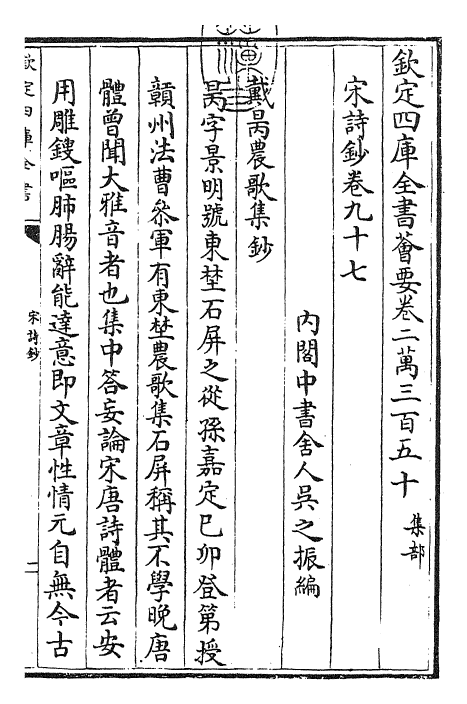 欽定四庫全書薈要卷二萬三百五十 集部
宋詩鈔卷九十七
內閣中書舍人吳之振編
戴昺農歌集鈔
昺字景明號東埜石屏之從孫嘉定己卯登第授
贛州法曹叅軍有東埜農歌集石屏稱其不學晚唐
體曾聞大雅音者也集中答妄論宋唐詩體者云安
用雕鎪嘔肺腸辭能達意即文章性情元自無今古
欽定四庫全書
宋詩鈔